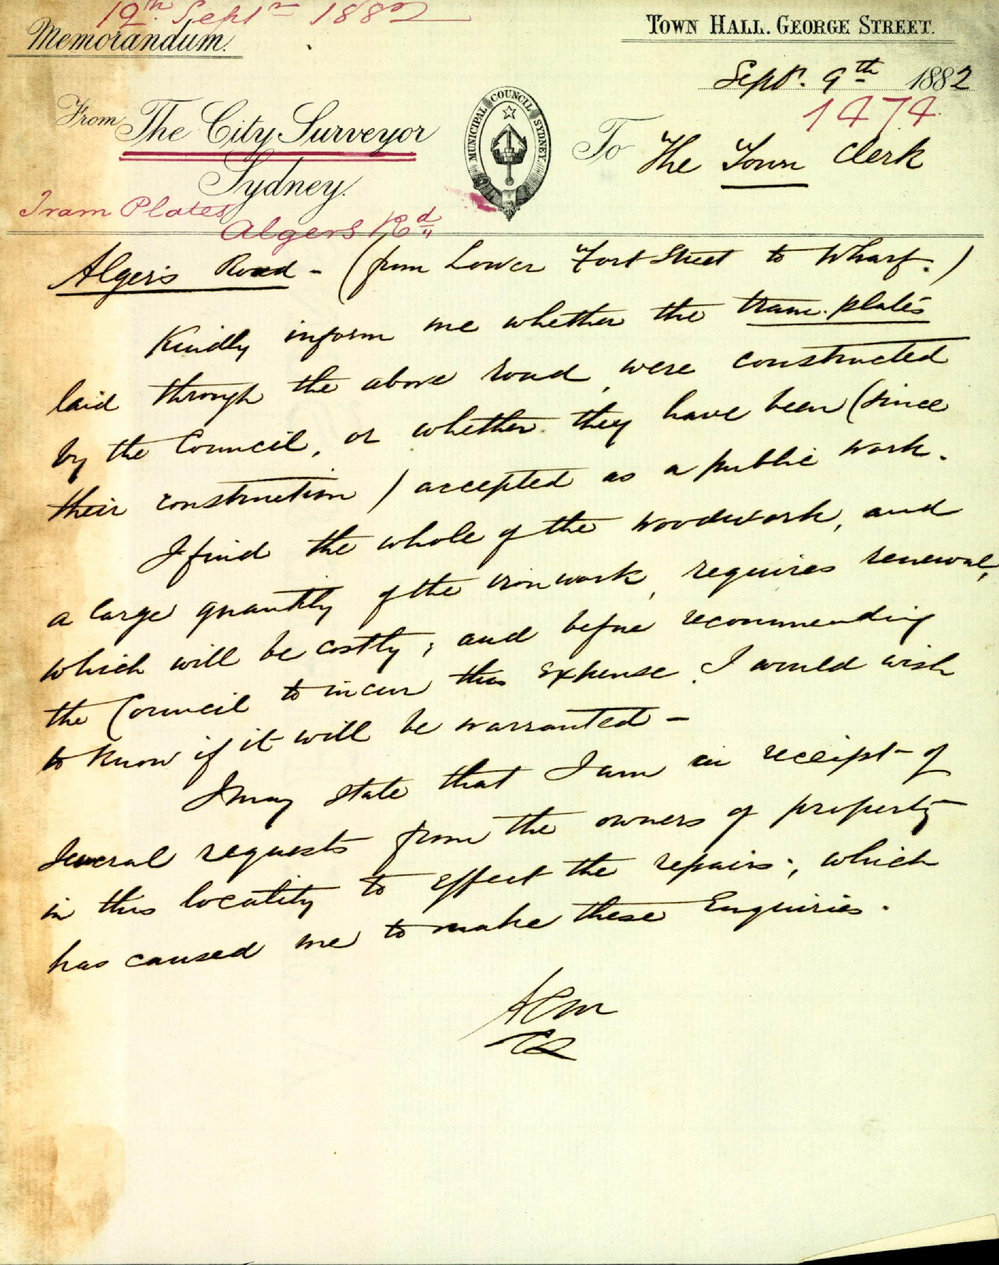 12th Septr 1882
Memorandum.
TOWN HALL. GEORGE STREET.
Septr. 9th 1882
1474
From The City Surveyor
Sydney.
MUNICIPAL COUNCIL SYDNEY
To The Town Clerk
Tram Plates
Algers Rd
Alger's Road - (from Lower Fort Street to Wharf.)
Kindly inform me whether the tram-plates
laid through the above road, were constructed
by the Council, or whether they have been (since
their construction) accepted as a public work.
I find the whole of the woodwork, and
a large quantity of the ironwork, requires renewal,
which will be costly; and before recommending
the Council to incur this expense I would wish
to know if it will be warranted -
I may state that I am in receipt of
several requests from the owners of property
in this locality to effect the repairs; which
has caused me to make these Enquiries.
CS